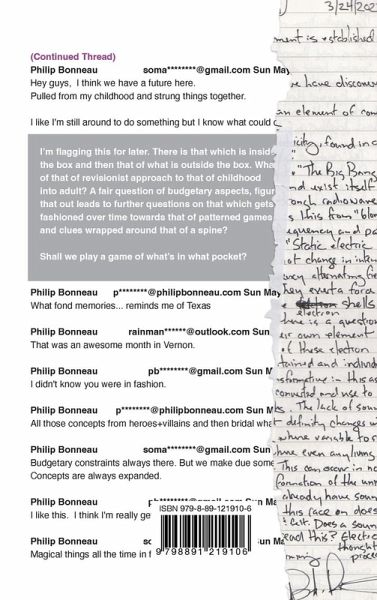 (Continued Thread)
Philip Bonneau soma********@gmail.com Sun May
Hey guys, I think we have a future here.
Pulled from my childhood and strung things together.
I like I'm still around to do something but I know what could
I'm flagging this for later. There is that which is inside
the box and then that of what is outside the box. What
of that of revisionist approach to that of childhood
into adult? A fair question of budgetary aspects, figur
that out leads to further questions on that which gets
fashioned over time towards that of patterned games
and clues wrapped around that of a spine?
Shall we play a game of what's in what pocket?
Philip Bonneau p********@philipbonneau.com Sun May
What fond memories... reminds me of Texas
Philip Bonneau rainman******@outlook.com Sun
That was an awesome month in Vernon.
Philip Bonneau pb********@gmail.com Sun M
I didn't know you were in fashion.
Philip Bonneau p********@philipbonneau.com Sun M
All those concepts from heroes+villains and then bridal what
Philip Bonneau soma********@gmail.com Sun
Budgetary constraints always there. But we make due some
Concepts are always expanded.
Philip Bonneau
I like this. I think I'm really ge
Philip Bonneau
Magical things all the time in
ISBN 979-8-89-121910-6
9 798891 219106
3/24/202
ment is established
we have discover
an element of com
icity, found in a
"The Big Bang
and exist itself
ough radiowave
s this from "blo
equency and pa
"Static electric
at change in
ency alternating
they exert a force
shells
electron
there is a question
eir own element
of these electron
tained and individ
nsformative in this as
converted and use to
s. The lack of soun
t definity changes
where variable to s
have even any living
This can occur in no
formation of the univ
already have soun
this race on does
felt. Does a soun
read this? Electric
thought
process